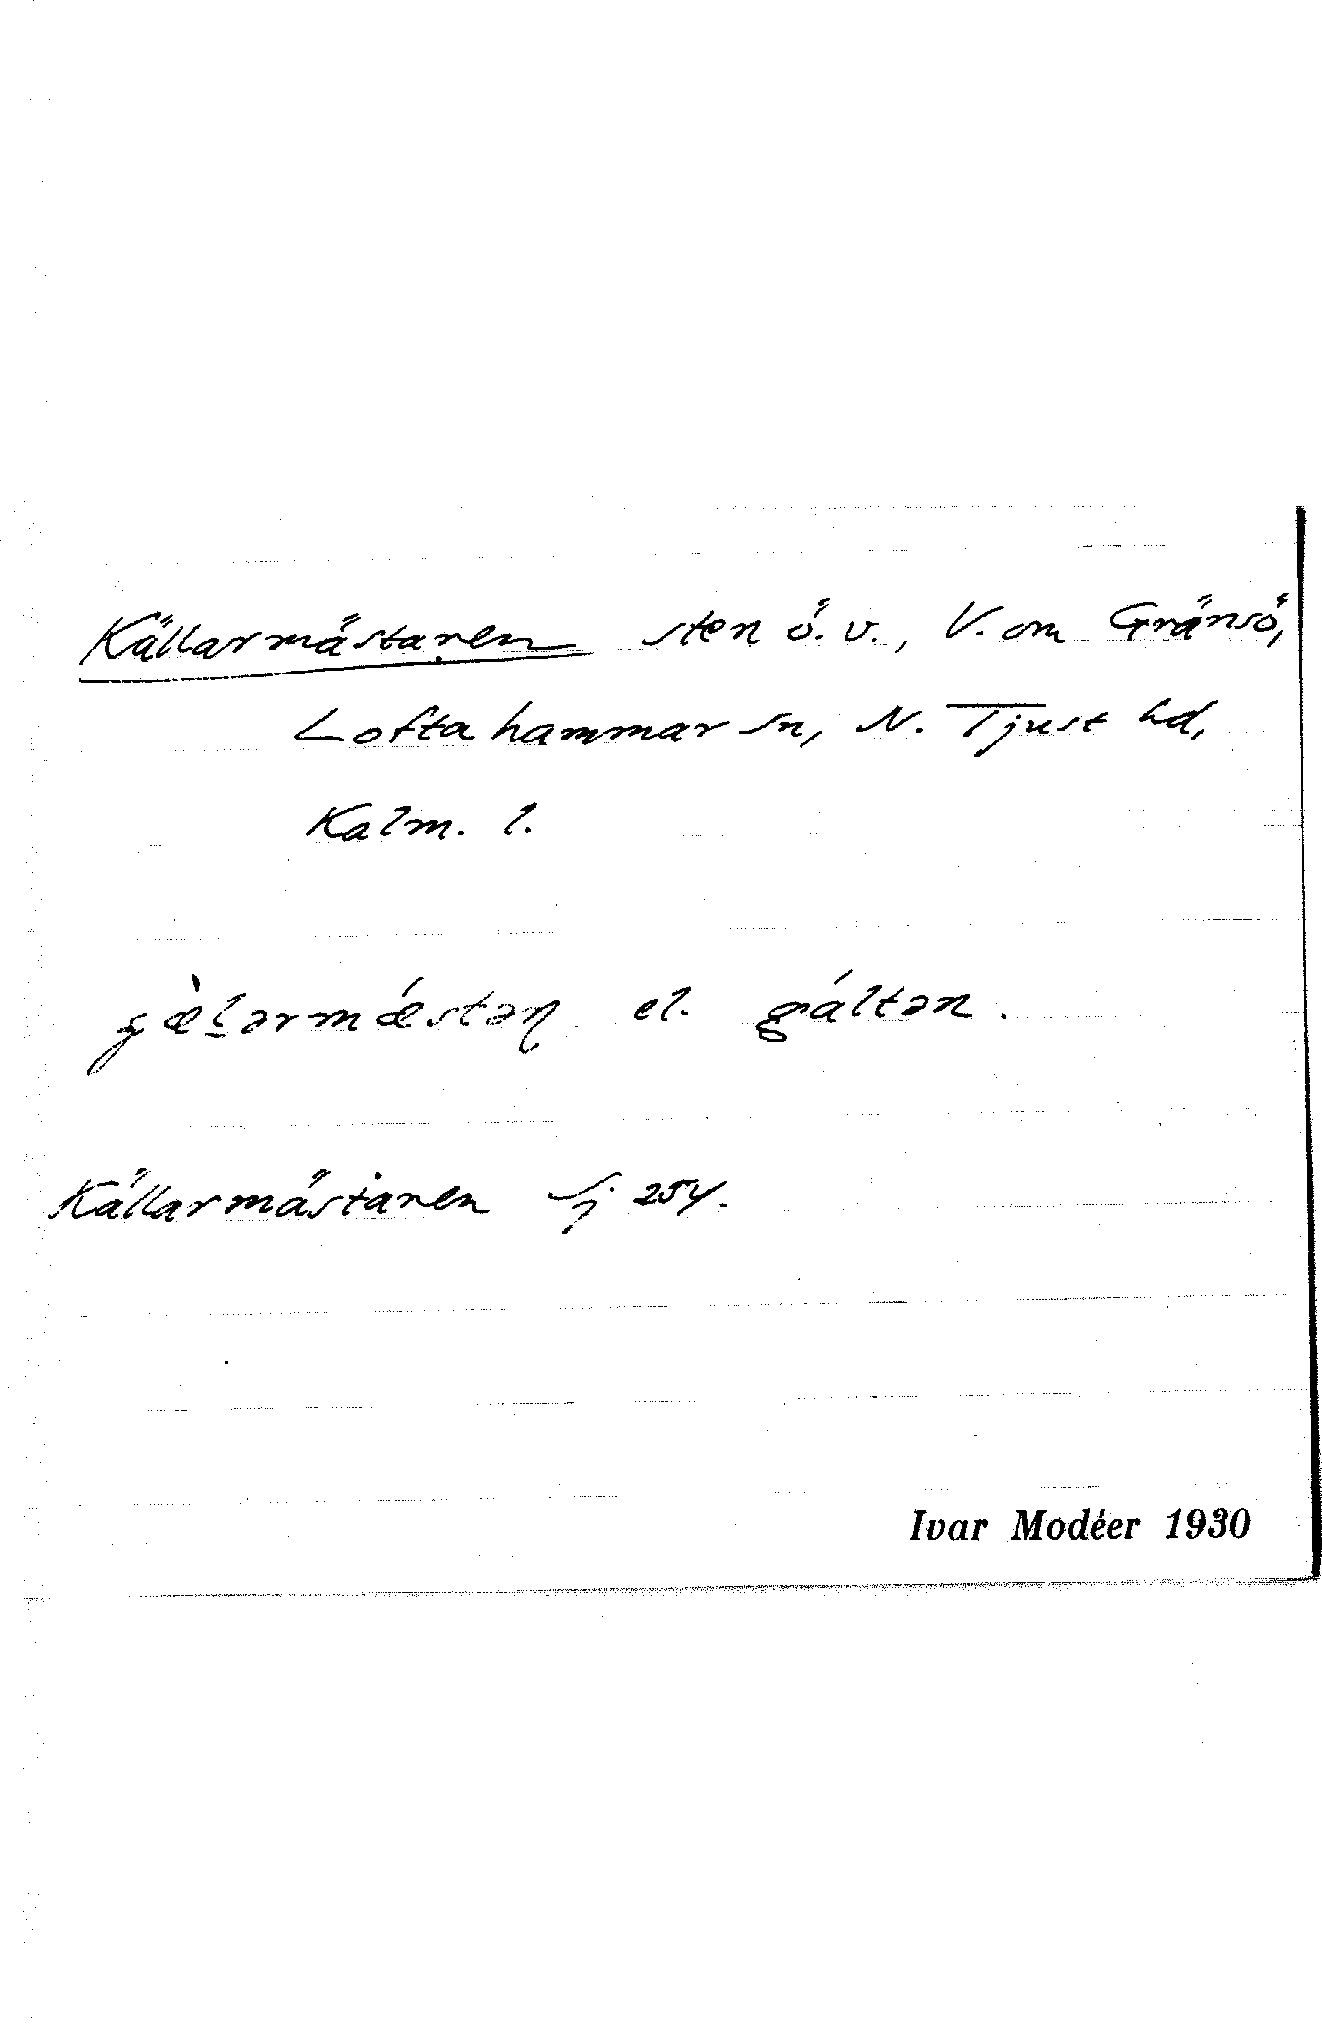 Källarmästaren sten ö. v., V. om Gränsö,
Loftahammar sn, N. Tjust hd,
Kalm. l.
el. gáltən.
Källarmästaren Sj 254.
Ivar Modéer 1930